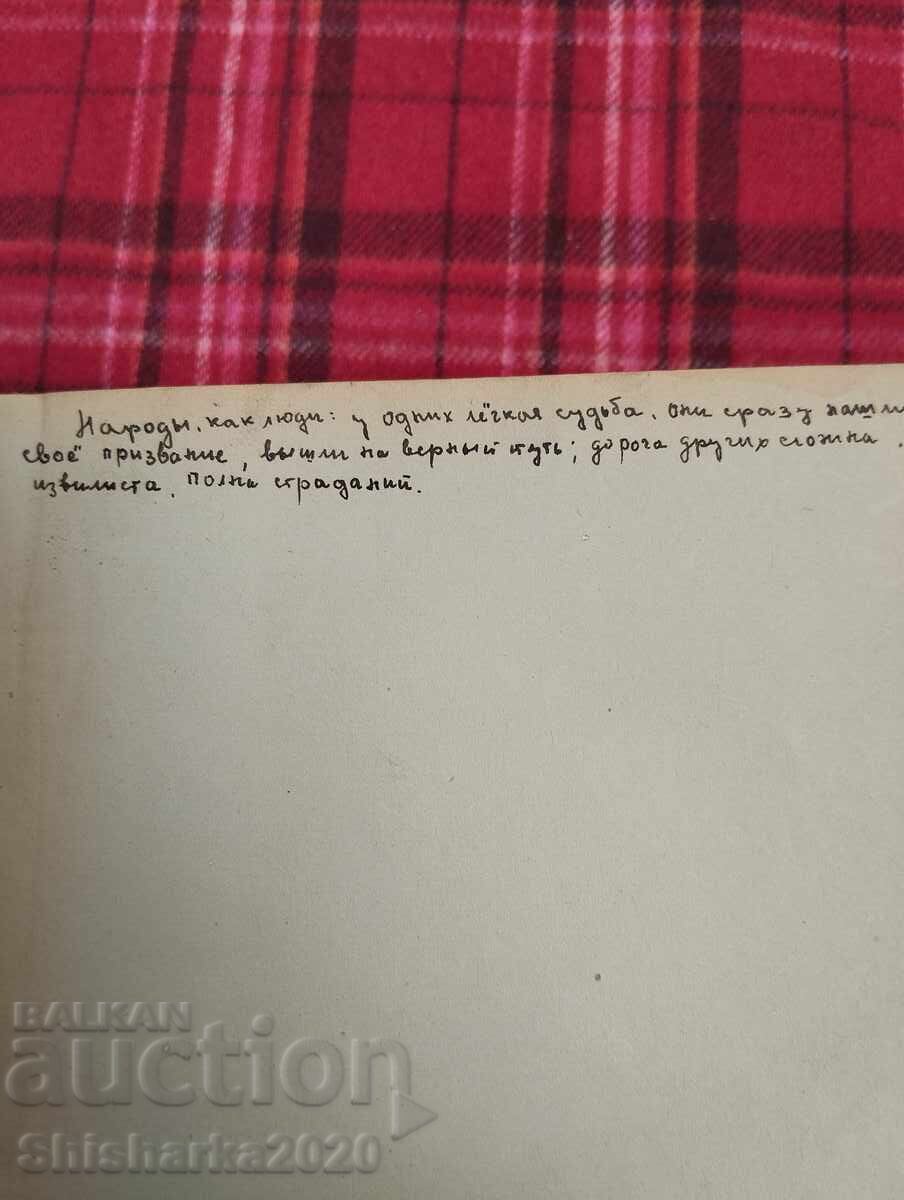 Народы, как люди: у одних лёгкая судьба, они сразу нашли
своё призвание, вышли на верный путь; дорога других сложна,
извилиста, полна страданий.
BALKAN
auction
Shisharka2020